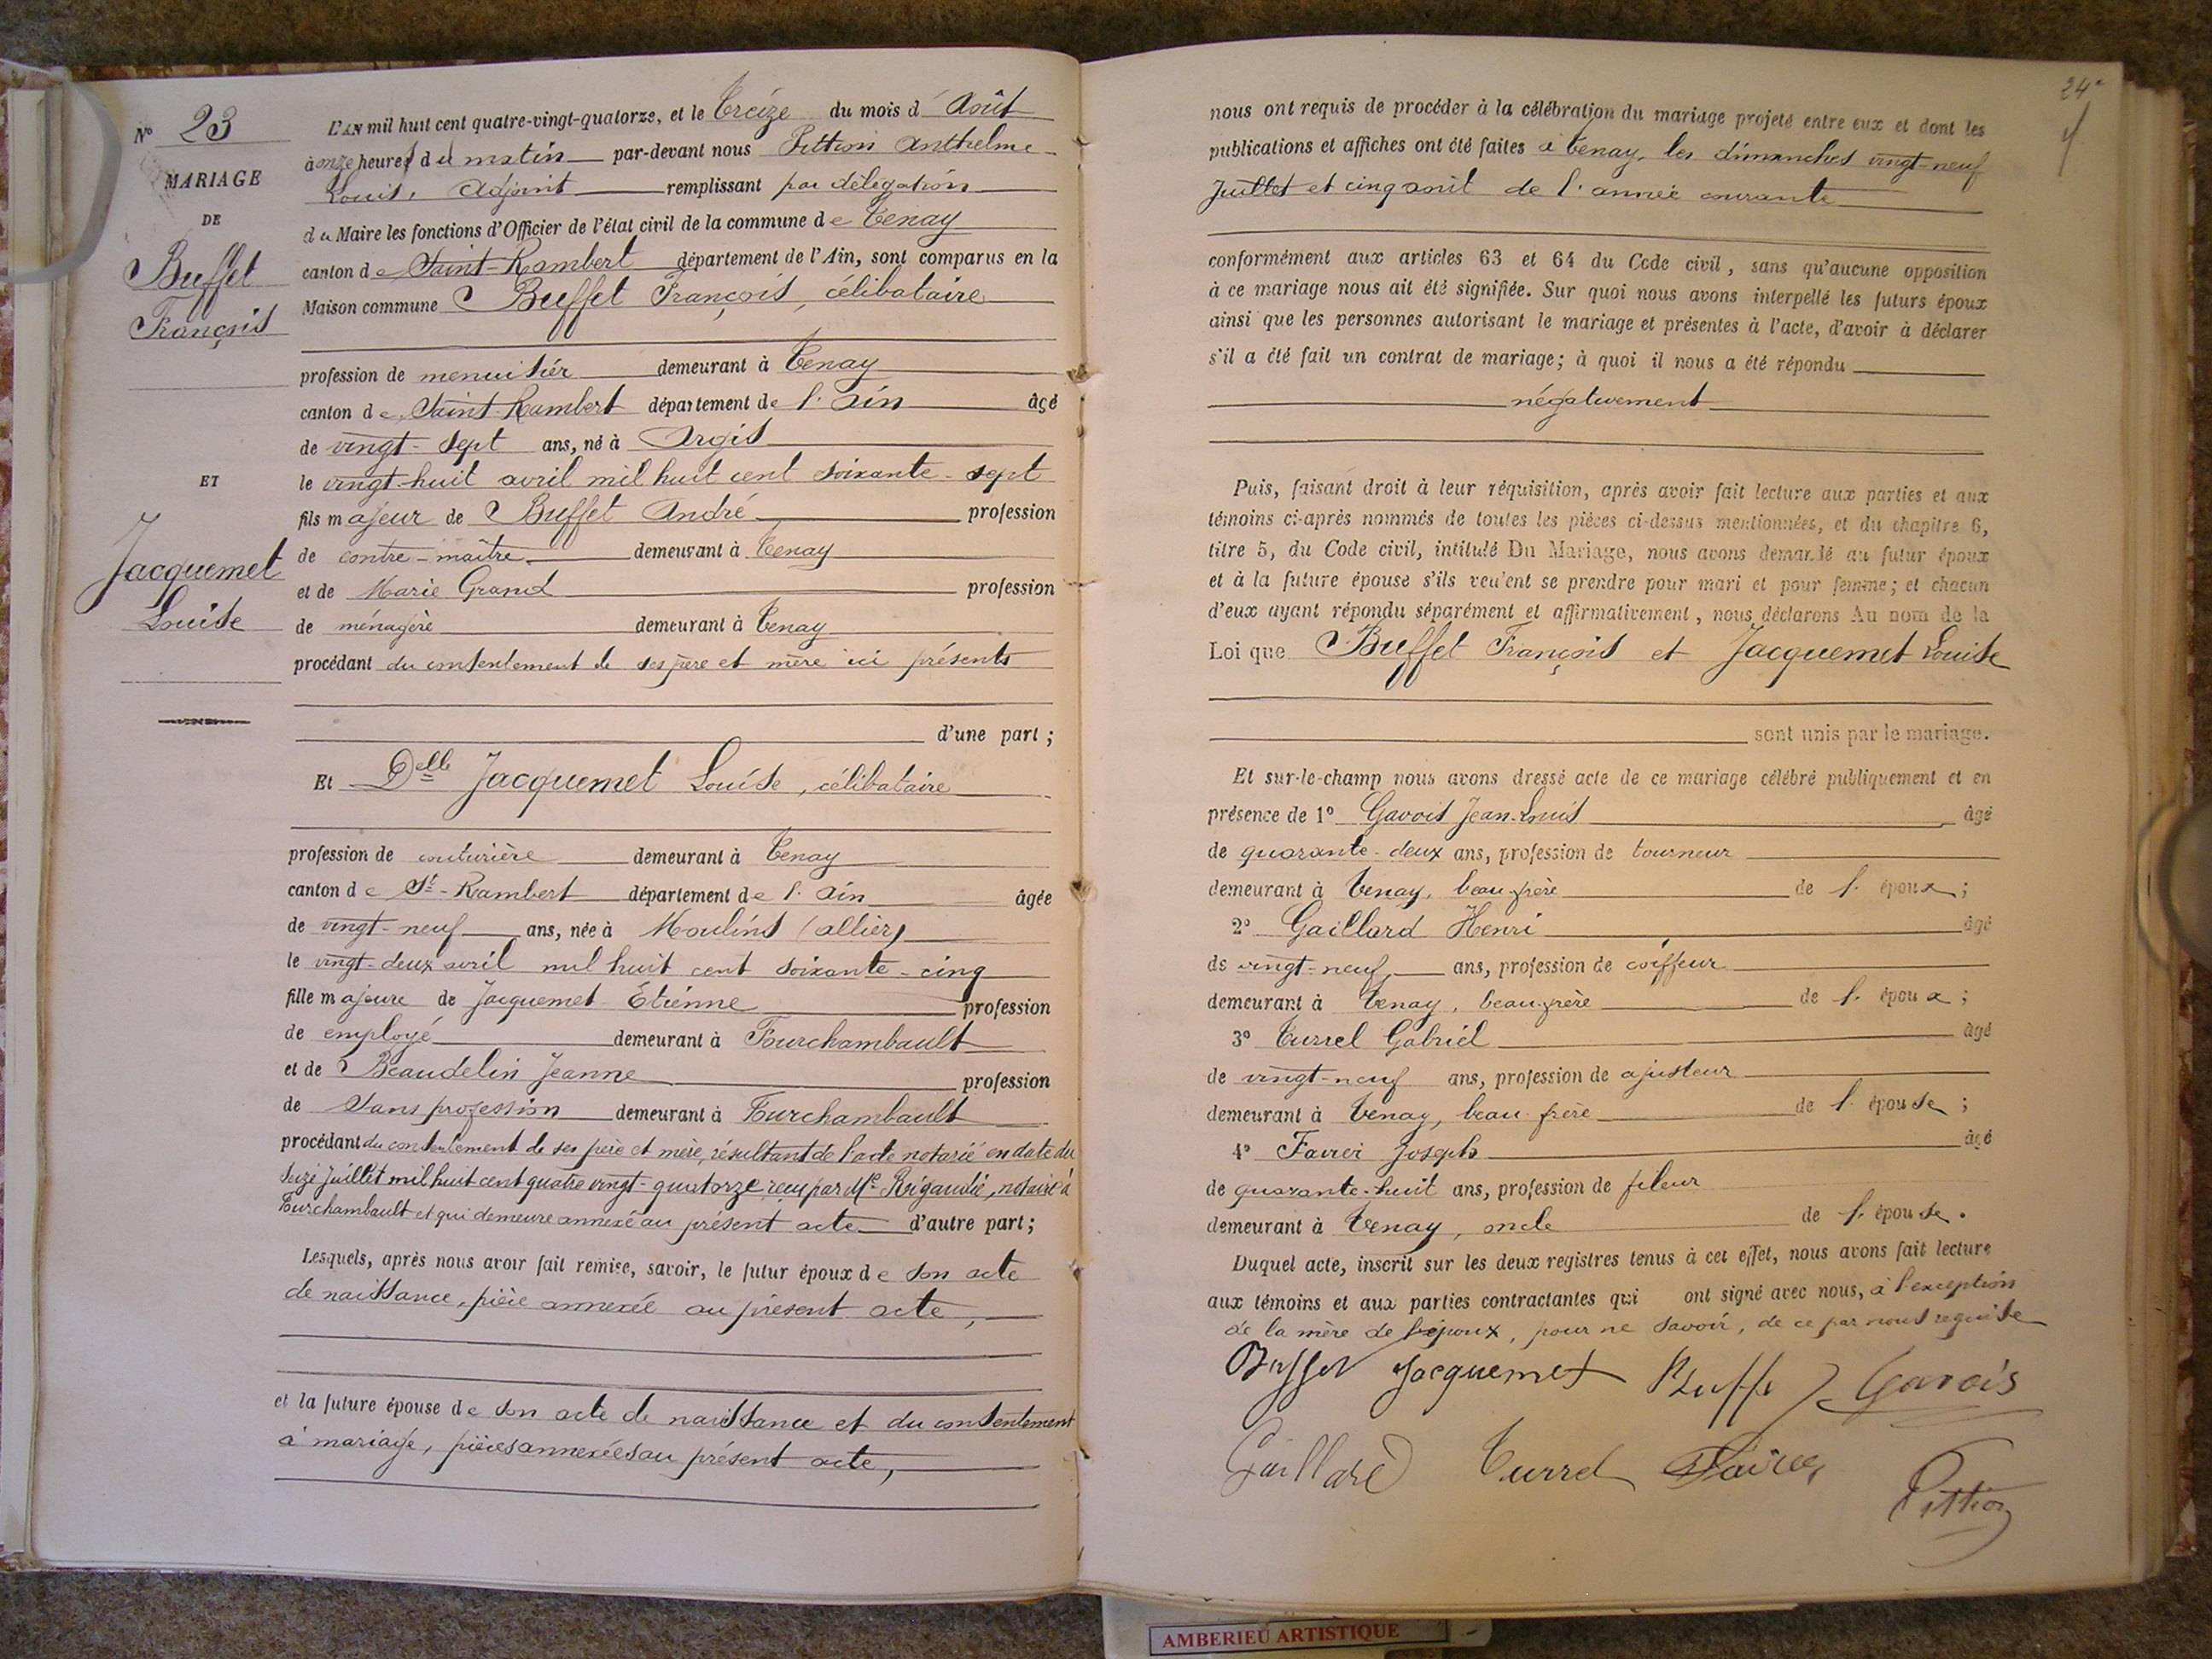 N° 23
MARIAGE
DE
Buffet
François
ET
Jacquemet
Louise
L'AN mil huit cent quatre-vingt-quatorze, et le treize du mois d' Août
à onze heures du matin par-devant nous Pittion Anthelme
Louis, Adjoint remplissant par délégation
du Maire les fonctions d'Officier de l'état civil de la commune de Tenay
canton de Saint-Rambert département de l'Ain, sont comparus en la
Maison commune Buffet François, célibataire
profession de menuisier demeurant à Tenay
canton de Saint-Rambert département de l'Ain âgé
de vingt-sept ans, né à Argis
le vingt-huit avril mil huit cent soixante-sept
fils majeur de Buffet André profession
de contre-maître demeurant à Tenay
et de Marie Grand profession
de ménagère demeurant à Tenay
procédant du consentement de ses père et mère ici présents
d'une part ;
Et Delle Jacquemet Louise, célibataire
profession de couturière demeurant à Tenay
canton de St-Rambert département de l'Ain âgée
de vingt-neuf ans, née à Moulins (allier)
le vingt-deux avril mil huit cent soixante-cinq
fille majeure de Jacquemet Étienne profession
de employé demeurant à Fourchambault
et de Beaudelin Jeanne profession
de Sans profession demeurant à Fourchambault
procédant du consentement de ses père et mère, résultant de l'acte notarié en date du
seize Juillet mil huit cent quatre vingt-quatorze reçu par Me Rigaudie, notaire à
Fourchambault et qui demeure annexé au présent acte d'autre part ;
Lesquels, après nous avoir fait remise, savoir, le futur époux de son acte
de naissance, pièce annexée au présent acte,
et la future épouse de son acte de naissance et du consentement
à mariage, pièces annexées au présent acte,
24
nous ont requis de procéder à la célébration du mariage projeté entre eux et dont les
publications et affiches ont été faites à Tenay, les dimanches vingt-neuf
Juillet et cinq août de l'année courante
conformément aux articles 63 et 64 du Code civil, sans qu'aucune opposition
à ce mariage nous ait été signifiée. Sur quoi nous avons interpellé les futurs époux
ainsi que les personnes autorisant le mariage et présentes à l'acte, d'avoir à déclarer
s'il a été fait un contrat de mariage ; à quoi il nous a été répondu
négativement
Puis, faisant droit à leur réquisition, après avoir fait lecture aux parties et aux
témoins ci-après nommés de toutes les pièces ci-dessus mentionnées, et du chapitre 6,
titre 5, du Code civil, intitulé Du Mariage, nous avons demandé au futur époux
et à la future épouse s'ils veulent se prendre pour mari et pour femme ; et chacun
d'eux ayant répondu séparément et affirmativement, nous déclarons Au nom de la
Loi que Buffet François et Jacquemet Louise
sont unis par le mariage.
Et sur-le-champ nous avons dressé acte de ce mariage célébré publiquement et en
présence de 1° Gavois Jean-Louis âgé
de quarante-deux ans, profession de tourneur
demeurant à Tenay, beau-frère de l'époux ;
2° Gaillard Henri âgé
de vingt-neuf ans, profession de coiffeur
demeurant à Tenay, beau-frère de l'époux ;
3° Turrel Gabriel âgé
de vingt-neuf ans, profession de ajusteur
demeurant à Tenay, beau-frère de l'épouse ;
4° Favier Joseph âgé
de quarante-huit ans, profession de fileur
demeurant à Tenay, oncle de l'épouse.
Duquel acte, inscrit sur les deux registres tenus à cet effet, nous avons fait lecture
aux témoins et aux parties contractantes qui ont signé avec nous, à l'exception
de la mère de l'époux, pour ne savoir, de ce par nous requise
Buffet Jacquemet Buffet Gavois
Gaillard Turrel Favier
Pittion
AMBERIEU ARTISTIQUE